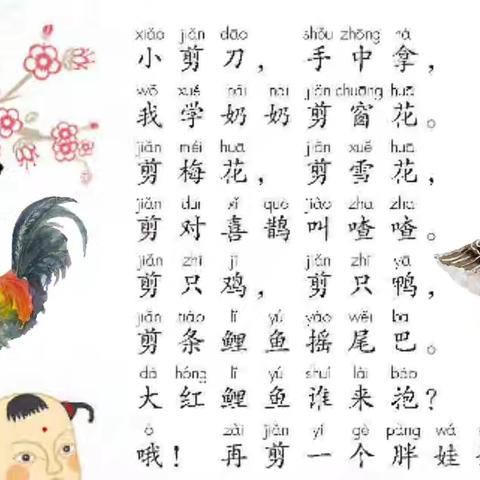 xiǎo jiǎn dāo shǒu zhōng ná
小剪刀，手中拿，
wǒ xué nǎi nai jiǎn chuāng huā
我学奶奶剪窗花。
jiǎn méi huā jiǎn xuě huā
剪梅花，剪雪花，
jiǎn duì xǐ què jiào zhā zhā
剪对喜鹊叫喳喳。
jiǎn zhī jī jiǎn zhī yā
剪只鸡，剪只鸭，
jiǎn tiáo lǐ yú yáo wěi ba
剪条鲤鱼摇尾巴。
dà hóng lǐ yú shuí lái bào
大红鲤鱼谁来抱？
ò zài jiǎn yí gè pàng wá
哦！再剪一个胖娃